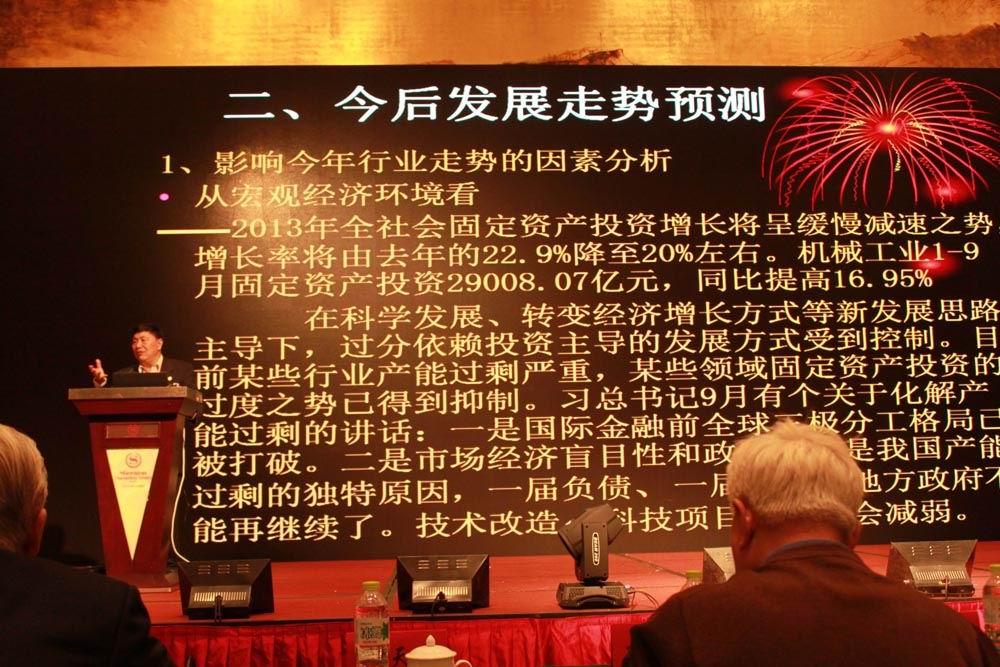 二、今后发展走势预测
1、影响今年行业走势的因素分析
• 从宏观经济环境看
——2013年全社会固定资产投资增长将呈缓慢减速之势，
增长率将由去年的22.9%降至20%左右。机械工业1-9
月固定资产投资29008.07亿元，同比提高16.95%
在科学发展、转变经济增长方式等新发展思路
主导下，过分依赖投资主导的发展方式受到控制。目
前某些行业产能过剩严重，某些领域固定资产投资的
过度之势已得到抑制。习总书记9月有个关于化解产
能过剩的讲话：一是国际金融前全球 极分工格局已
被打破。二是市场经济盲目性和政 是我国产能
过剩的独特原因，一届负债、一届 地方政府不
能再继续了。技术改造、科技项目 会减弱。